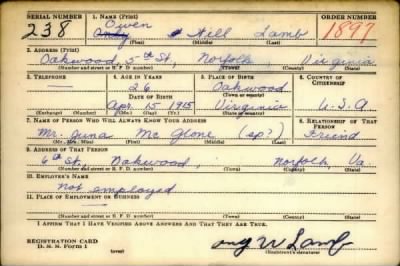 SERIAL NUMBER 1. NAME (Print) ORDER NUMBER
Owen
238 Andy Will Lamb 1897
(First) (Middle) (Last)
2. ADDRESS (Print)
Oakwood, 5th St, Norfolk, Virginia
(Number and street or R. F. D. number) (Town) (County) (State)
3. TELEPHONE 4. AGE IN YEARS 5. PLACE OF BIRTH 6. COUNTRY OF CITIZENSHIP
— 26 Oakwood
DATE OF BIRTH (Town or county)
Apr. 15 1915 Virginia U.S.A
(Exchange) (Number) (Mo.) (Day) (Yr.) (State or country)
7. NAME OF PERSON WHO WILL ALWAYS KNOW YOUR ADDRESS 8. RELATIONSHIP OF THAT PERSON
Mr. Juna Mc Glone (sp?) Friend
(Mr., Mrs., Miss) (First) (Middle) (Last)
9. ADDRESS OF THAT PERSON
6th St, Oakwood, Norfolk, Va.
(Number and street or R. F. D. number) (Town) (County) (State)
10. EMPLOYER'S NAME
Not employed
11. PLACE OF EMPLOYMENT OR BUSINESS
(Number and street or R. F. D. number) (Town) (County) (State)
I AFFIRM THAT I HAVE VERIFIED ABOVE ANSWERS AND THAT THEY ARE TRUE.
REGISTRATION CARD
D. S. S. Form 1 (over) W Lamb
(Registrant's signature)